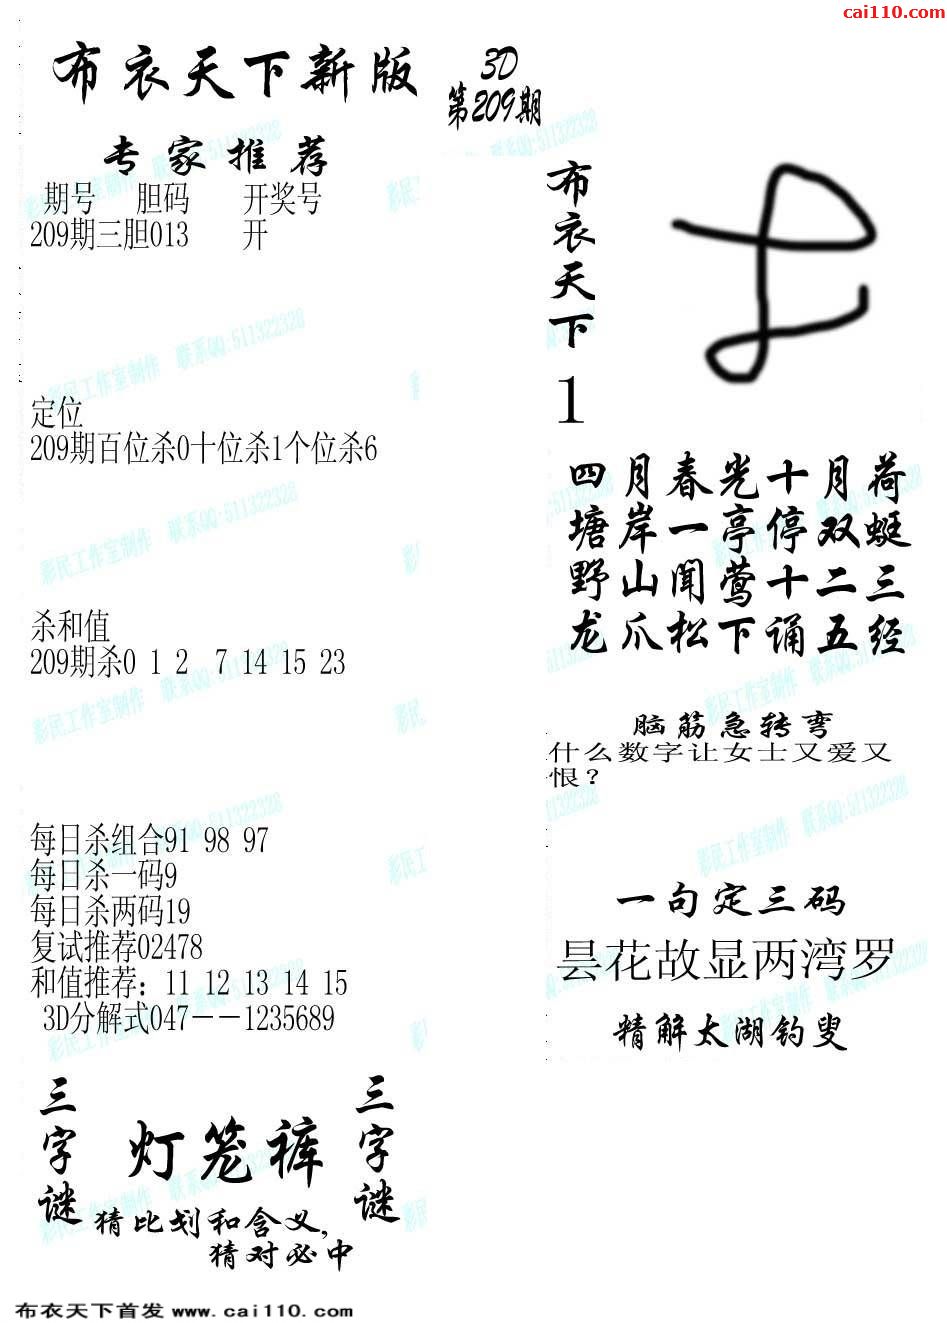 cai110.com
布衣天下新版
3D
第209期
专家推荐
期号 胆码 开奖号
209期三胆013 开
定位
209期百位杀0十位杀1个位杀6
杀和值
209期杀0 1 2 7 14 15 23
每日杀组合91 98 97
每日杀一码9
每日杀两码19
复试推荐02478
和值推荐：11 12 13 14 15
3D分解式047－－1235689
三字谜
灯笼裤
三字谜
猜比划和含义,
猜对必中
布衣天下
1
四月春光十月荷
塘岸一亭停双蜓
野山闻莺十二三
龙爪松下诵五经
脑筋急转弯
什么数字让女士又爱又
恨？
一句定三码
昙花故显两湾罗
精解太湖钓叟
彩民工作室制作 联系QQ:511322328
布衣天下首发 www.cai110.com